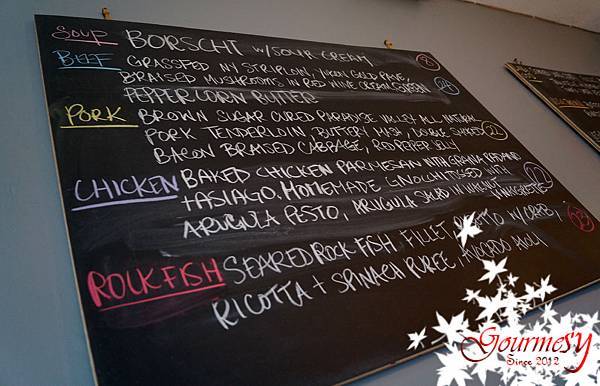 SOUP BORSCHT W/ SOUR CREAM 8
BEEF GRASSFED NY STRIPLOIN, YUKON GOLD PAVE,
BRAISED MUSHROOMS IN RED WINE CREAM, GREEN 24
PEPPERCORN BUTTER
PORK BROWN SUGAR CURED PARADISE VALLEY ALL NATURAL
PORK TENDERLOIN, BUTTERY MASH, DOUBLE SMOKED
BACON BRAISED CABBAGE, RED PEPPER JELLY
CHICKEN BAKED CHICKEN PARMESAN WITH GRANA PADANO
+ ASIAGO. HOMEMADE GNOCCHI TOSSED WITH
ARUGULA PESTO, ARUGULA SALAD IN WALNUT VINAIGRETTE
ROCKFISH SEARED ROCK FISH FILLET RISOTTO W/ CRAB, 23
RICOTTA + SPINACH PUREE, AVOCADO AIOLI
GourmeSY
Since 2012